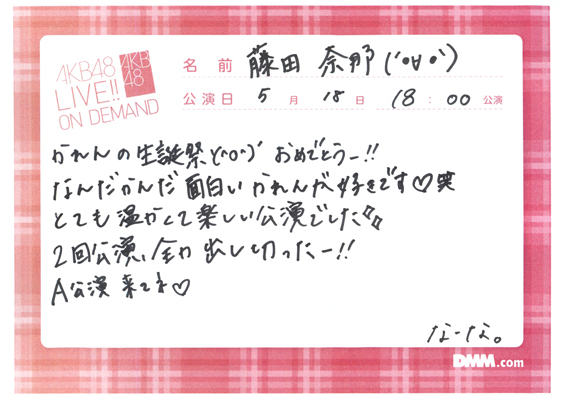 AKB48
LIVE!!
ON DEMAND
AKB
48
名前 藤田 奈那(´•∀•`)
公演日 5月18日 18:00公演
かれんの生誕祭ヾ(^o^)ﾉ おめでとうー!!
なんだかんだ面白いかれんが好きです♡笑
とても温かくて楽しい公演でした
2回公演、全力出し切ったー!!
A公演 来てネ♡
なーな。
DMM.com